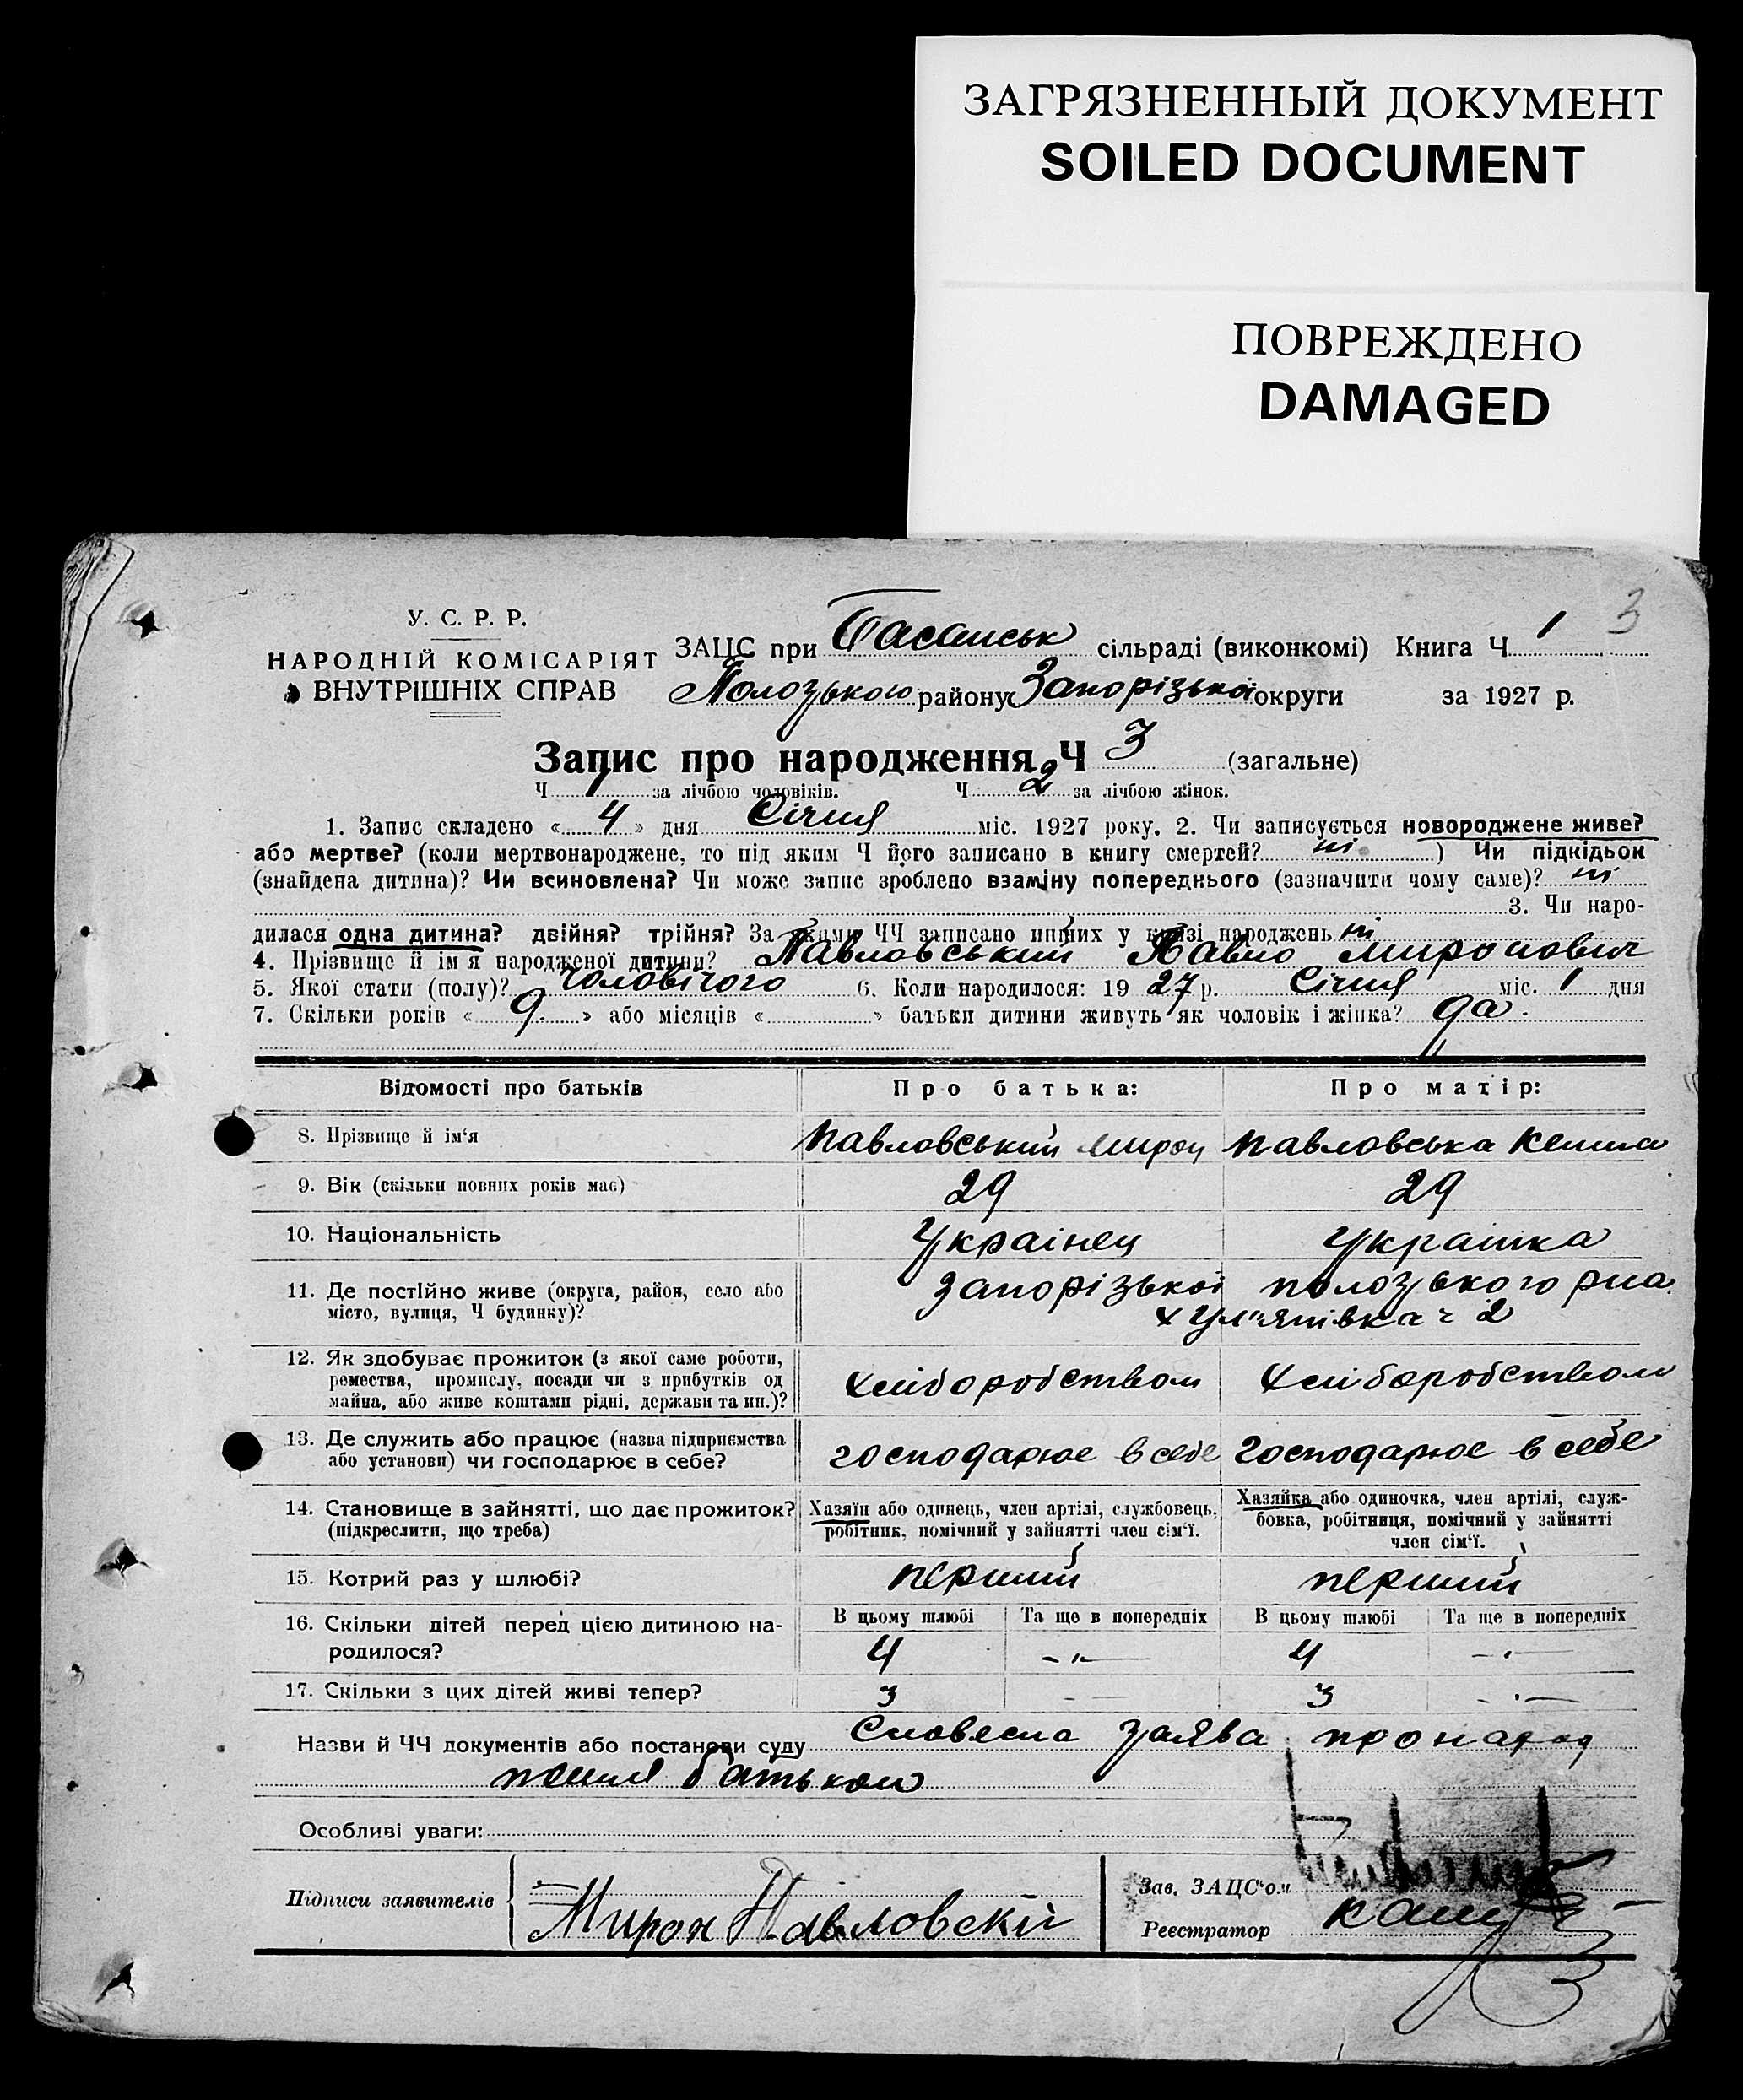 ЗАГРЯЗНЕННЫЙ ДОКУМЕНТ
SOILED DOCUMENT
ПОВРЕЖДЕНО
DAMAGED
3
У. С. Р. Р.
НАРОДНІЙ КОМІСАРІЯТ
ВНУТРІШНІХ СПРАВ
ЗАЦС при сільраді (виконкомі) Книга Ч 1
Полозького району Запорізької округи за 1927 р.
Запис про народження Ч 3 (загальне)
Ч 1 за лічбою чоловіків. Ч 2 за лічбою жінок.
1. Запис складено « 4 » дня Січня міс. 1927 року. 2. Чи записується новороджене живе?
або мертве? (коли мертвонароджене, то під яким Ч його записано в книгу смертей? ні ) Чи підкідьок
(знайдена дитина)? Чи всиновлена? Чи може запис зроблено взаміну попереднього (зазначити чому саме)? ні
3. Чи наро-
дилася одна дитина? двійня? трійня? За якими ЧЧ записано инших у книзі народжень ні
4. Прізвище й ім'я народженої дитини? Павловський Павло Миронович
5. Якої стати (полу)? чоловічого 6. Коли народилося: 19 27 р. Січня міс. 1 дня
7. Скільки років « 9 » або місяців « » батьки дитини живуть як чоловік і жінка? да.
Відомості про батьків Про батька: Про матір:
8. Прізвище й ім'я Павловський Мирон Павловська
9. Вік (скільки повних років має) 29 29
10. Національність Українец Українка
11. Де постійно живе (округа, район, село або Запорізької полозького
місто, вулиця, Ч будинку)? 2
12. Як здобуває прожиток (з якої саме роботи,
ремества, промислу, посади чи з прибутків од хліборобством хліборобством
майна, або живе коштами рідні, держави та ин.)?
13. Де служить або працює (назва підприємства
або установи) чи господарює в себе? господарює в себе господарює в себе
14. Становище в зайнятті, що дає прожиток? Хазяїн або одинець, член артілі, службовець, Хазяйка або одиночка, член артілі, служ-
(підкреслити, що треба) робітник, помічний у зайнятті член сім'ї. бовка, робітниця, помічний у зайнятті
член сім'ї.
15. Котрий раз у шлюбі? перший перший
16. Скільки дітей перед цією дитиною на- В цьому шлюбі Та ще в попередніх В цьому шлюбі Та ще в попередніх
родилося? 4 -"- 4 -"-
17. Скільки з цих дітей живі тепер? 3 - - 3 -"-
Назви й ЧЧ документів або постанови суду Словесна заява про народ
ження батьком
Особливі уваги:
Підписи заявителів Мирон Павловскій
Зав. ЗАЦС'ом
Реестратор